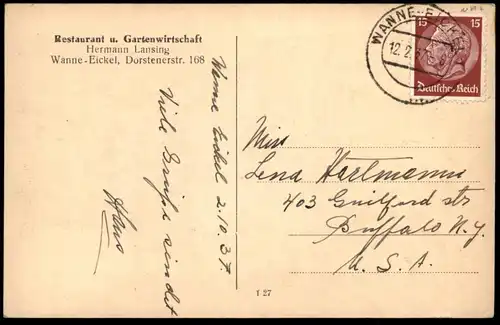 Restaurant u. Gartenwirtschaft
Hermann Lansing
Wanne-Eickel, Dorstenerstr. 168
WANNE-EICKEL
12.2.
15 15
Deutsches Reich
Wanne Eickel 2.10.37.
Viele Grüße sendet
Hans
Miss
Lena Hartmanns
403 Guilford str
Buffalo N.Y.
U.S.A.
T 27